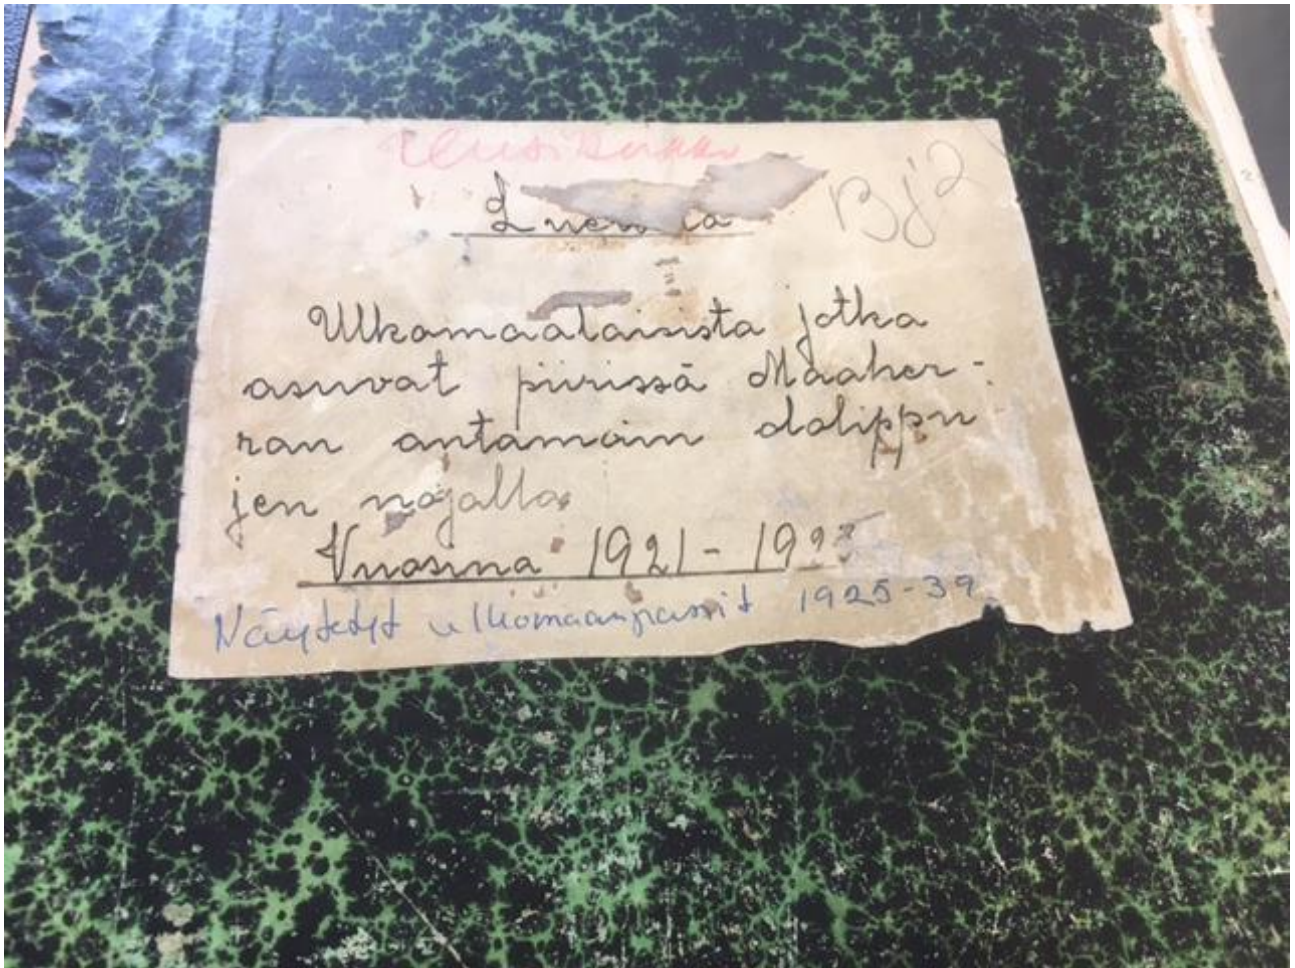 Uusikirkko
Bj2
Ulkomaalaisista jotka
asuvat piirissä Maaher-
ran antamain olalippu
jen nojalla
Vuosina 1921-
Näytetyt ulkomaanpassit 1925-39